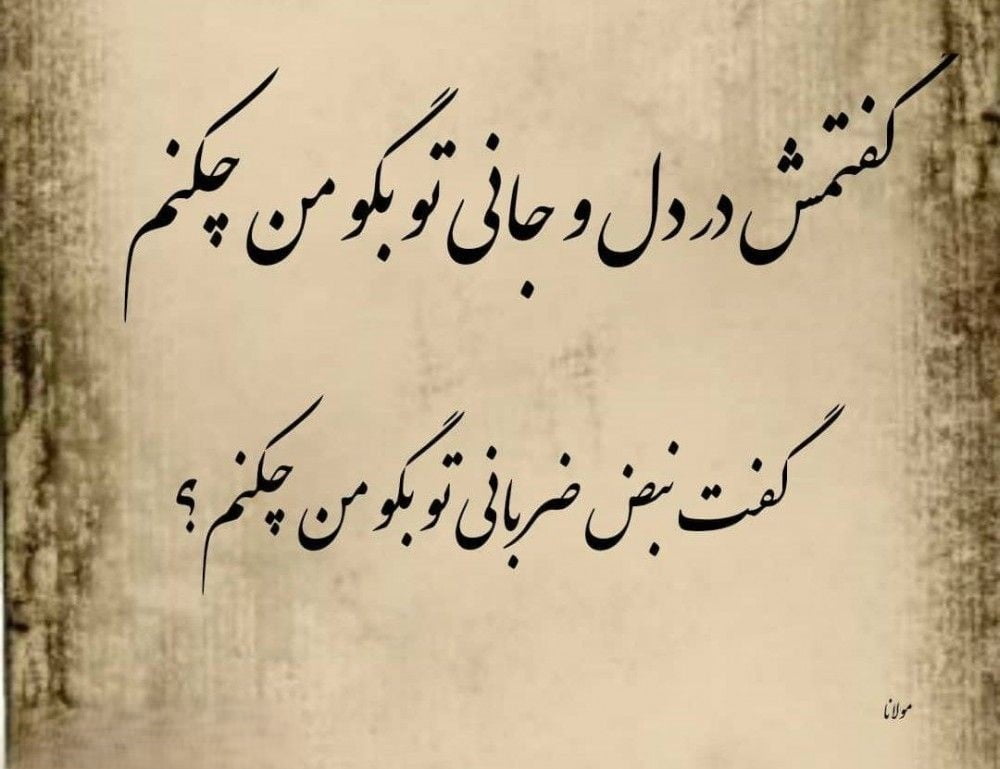 گفتمش در دل و جانی تو بگو من چکنم
گفت نبض ضربانی تو بگو من چکنم ؟
مولانا